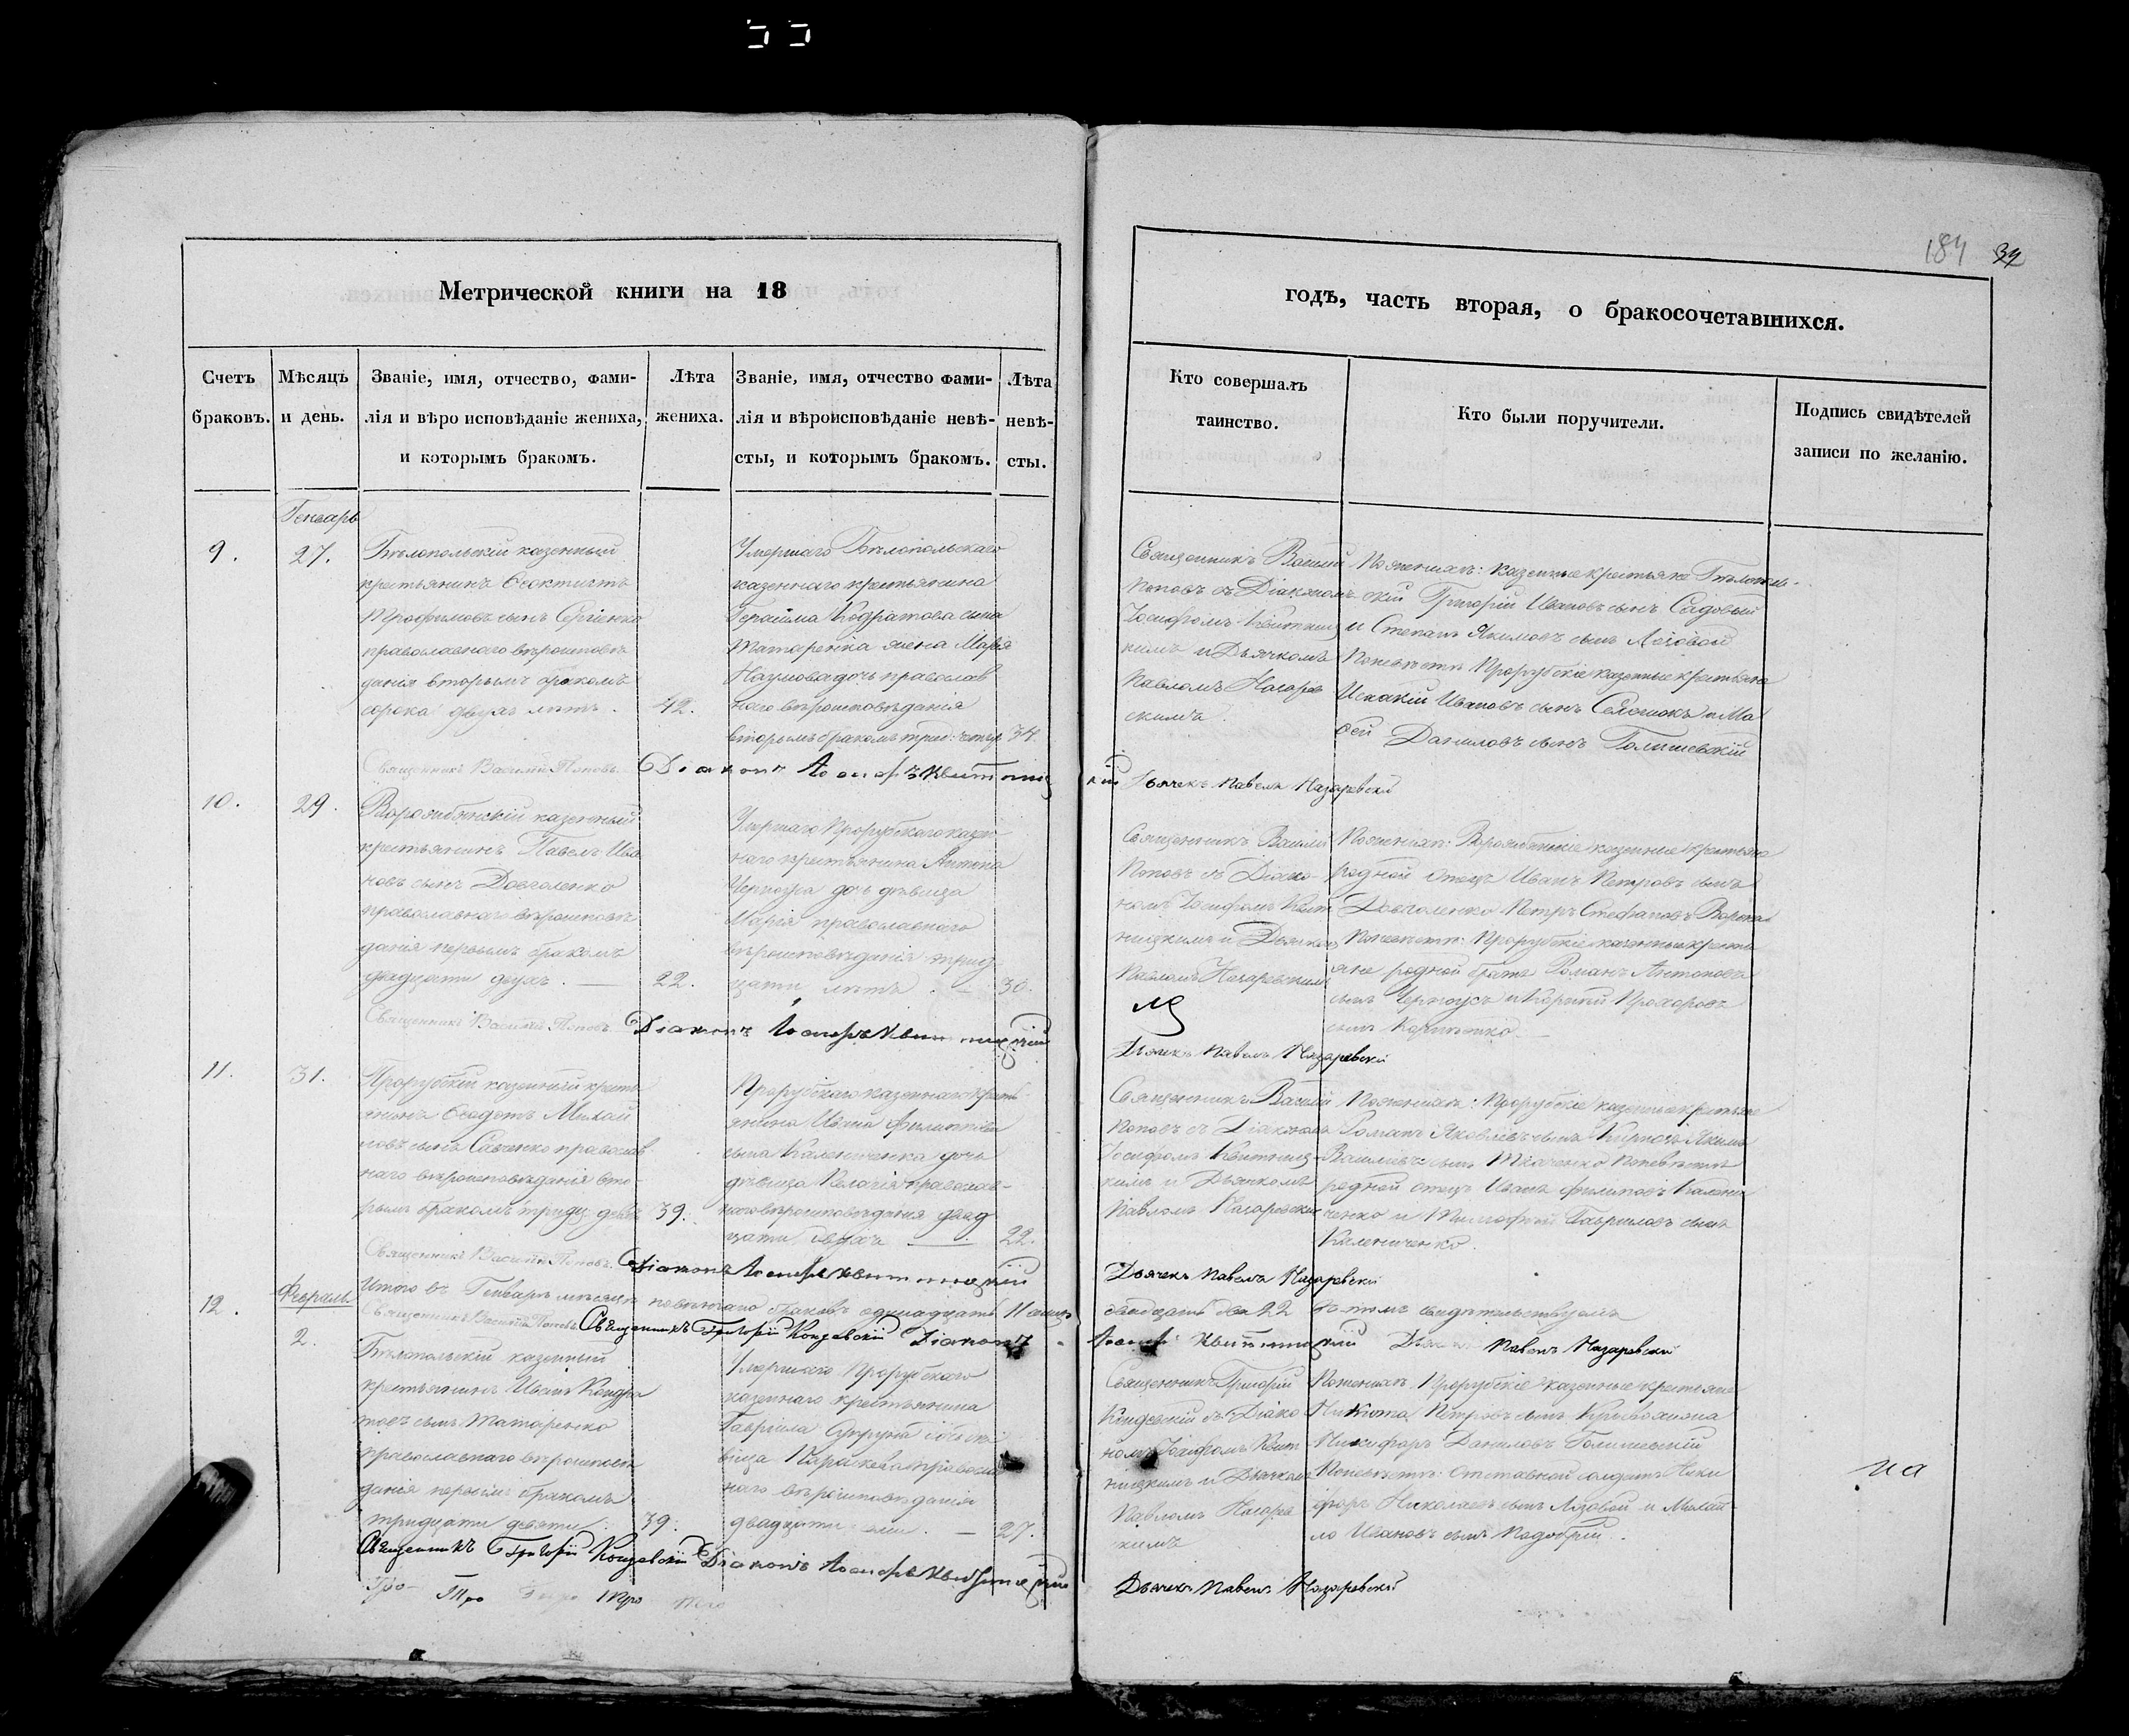 184 39
Метрической книги на 18
годъ, часть вторая, о бракосочетавшихся.
Счетъ
браковъ.
Мѣсяцъ
и день.
Званіе, имя, отчество, фами-
лія и вѣро исповѣданіе жениха,
и которымъ бракомъ.
Лѣта
жениха.
Званіе, имя, отчество фами-
лія и вѣроисповѣданіе невѣ-
сты, и которымъ бракомъ.
Лѣта
невѣ-
сты.
Кто совершалъ
таинство.
Кто были поручители.
Подпись свидѣтелей
записи по желанію.
Генварь
9.
27.
Бѣлопольскій казенный
крестьянинъ Ѳеоктистъ
Трофимовъ сынъ Сергіенко
православнаго вѣроисповѣ
данія вторымъ бракомъ
сорока двухъ лѣтъ.
42.
Умершаго Бѣлопольскаго
казеннаго крестьянина
Герасима Кодратова сына
Татаренка жена Марія
Наумова дочь православ
наго вѣроисповѣданія
вторымъ бракомъ трид: четыр
34.
Священникъ Василій
Поповъ съ Діакономъ
Іосифомъ Квитниц
кимъ и Дьячкомъ
Павломъ Назарев
скимъ.
По женихѣ: казенные крестьяне Бѣлополь-
скій Григорій Ивановъ сынъ Садовый
и Степанъ Якимовъ сынъ Лозовой
По невѣстѣ Прорубскіе казенные крестьяне
Исакій Ивановъ сынъ и Ма
фей Даниловъ сынъ Голишевскій
Священникъ Василій Поповъ. Діаконъ Іосифъ Квитницкій Дьячекъ Павелъ Назаревскій
10.
29.
Ворожбянскій казенный
крестьянинъ Павелъ Ива
новъ сынъ Довголенко
православнаго вѣроисповѣ
данія первымъ бракомъ
двадцати двухъ.
22.
Умершаго Прорубскаго казен
наго крестьянина Антона
Черноуса дочь дѣвица
Марія православнаго
вѣроисповѣданія трид
цати лѣтъ.
30.
Священникъ Василій
Поповъ съ Діако-
номъ Іосифомъ Квит
ницкимъ и Дьячкомъ
Павломъ Назаревскимъ
По женихѣ: Ворожбянскіе казенные крестьяне
родной отецъ Иванъ Петровъ сынъ
Довголенко Петръ Стефановъ
По невѣстѣ: Прорубскіе казенные кресть
яне родной братъ Романъ Антоновъ
сынъ Черноусъ и Прохоровъ
сынъ
Священникъ Василій Поповъ. Діаконъ Іосифъ Квитницкій
Дьячекъ Павелъ Назаревскій
11.
31.
Прорубскій казенный кресть
янинъ Ѳеодотъ Михай
ловъ сынъ Савченко православ
наго вѣроисповѣданія вто-
рымъ бракомъ тридц: девять
39.
Прорубскаго казеннаго кресть
янина Ивана Филиппова
сына Калениченка дочь
дѣвица Пелагія православ-
наго вѣроисповѣданія двад
цати двухъ
22.
Священникъ Василій
Поповъ съ Діакономъ
Іосифомъ Квитниц-
кимъ и Дьячкомъ
Павломъ Назаревски
По женихѣ: Прорубскіе казенные крестьяне
Романъ Яковлевъ сынъ Якимъ
Василіевъ сынъ Ткаченко По невѣстѣ
родной отецъ Иванъ Филиповъ Калени
ченко и Тимофей Гавриловъ сынъ
Калениченко.
Священникъ Василій Поповъ. Діаконъ Іосифъ Квитницкій
Дьячекъ Павелъ Назаревскій
Итого въ Генварѣ мѣсяцѣ повѣнчано браковъ одинадцать 11 лицъ
двадцать два 22 въ томъ свидѣтельствуемъ
Священникъ Василій Поповъ Священникъ Григорій Кондевскій Діаконъ Іосифъ Квитницкій Дьячекъ Павелъ Назаревскій
Февраль
12.
2.
Бѣлопольскій казенный
крестьянинъ Иванъ Кондра
товъ сынъ Татаренко
православнаго вѣроисповѣ
данія первымъ бракомъ
тридцати девяти.
39.
Умершаго Прорубскаго
казеннаго крестьянина
Гавріила Супруна дочь дѣ
вица Параскева православ
наго вѣроисповѣданія
двадцати семи.
27.
Священникъ Григорій
Кондевскій съ Діако
номъ Іосифомъ Квит
ницкимъ и Дьячкомъ
Павломъ Назарев
скимъ
По женихѣ. Прорубскіе казенные крестьяне
Никита Петровъ сынъ
Никифоръ Даниловъ Голишевскій
По невѣстѣ: Отставной солдатъ Ники
форъ Николаевъ сынъ Лозовой и Михай-
ло Ивановъ сынъ
Священникъ Григорій Кондевскій Діаконъ Іосифъ Квитницкій
Дьячекъ Павелъ Назаревскій
Про- Про Про
на